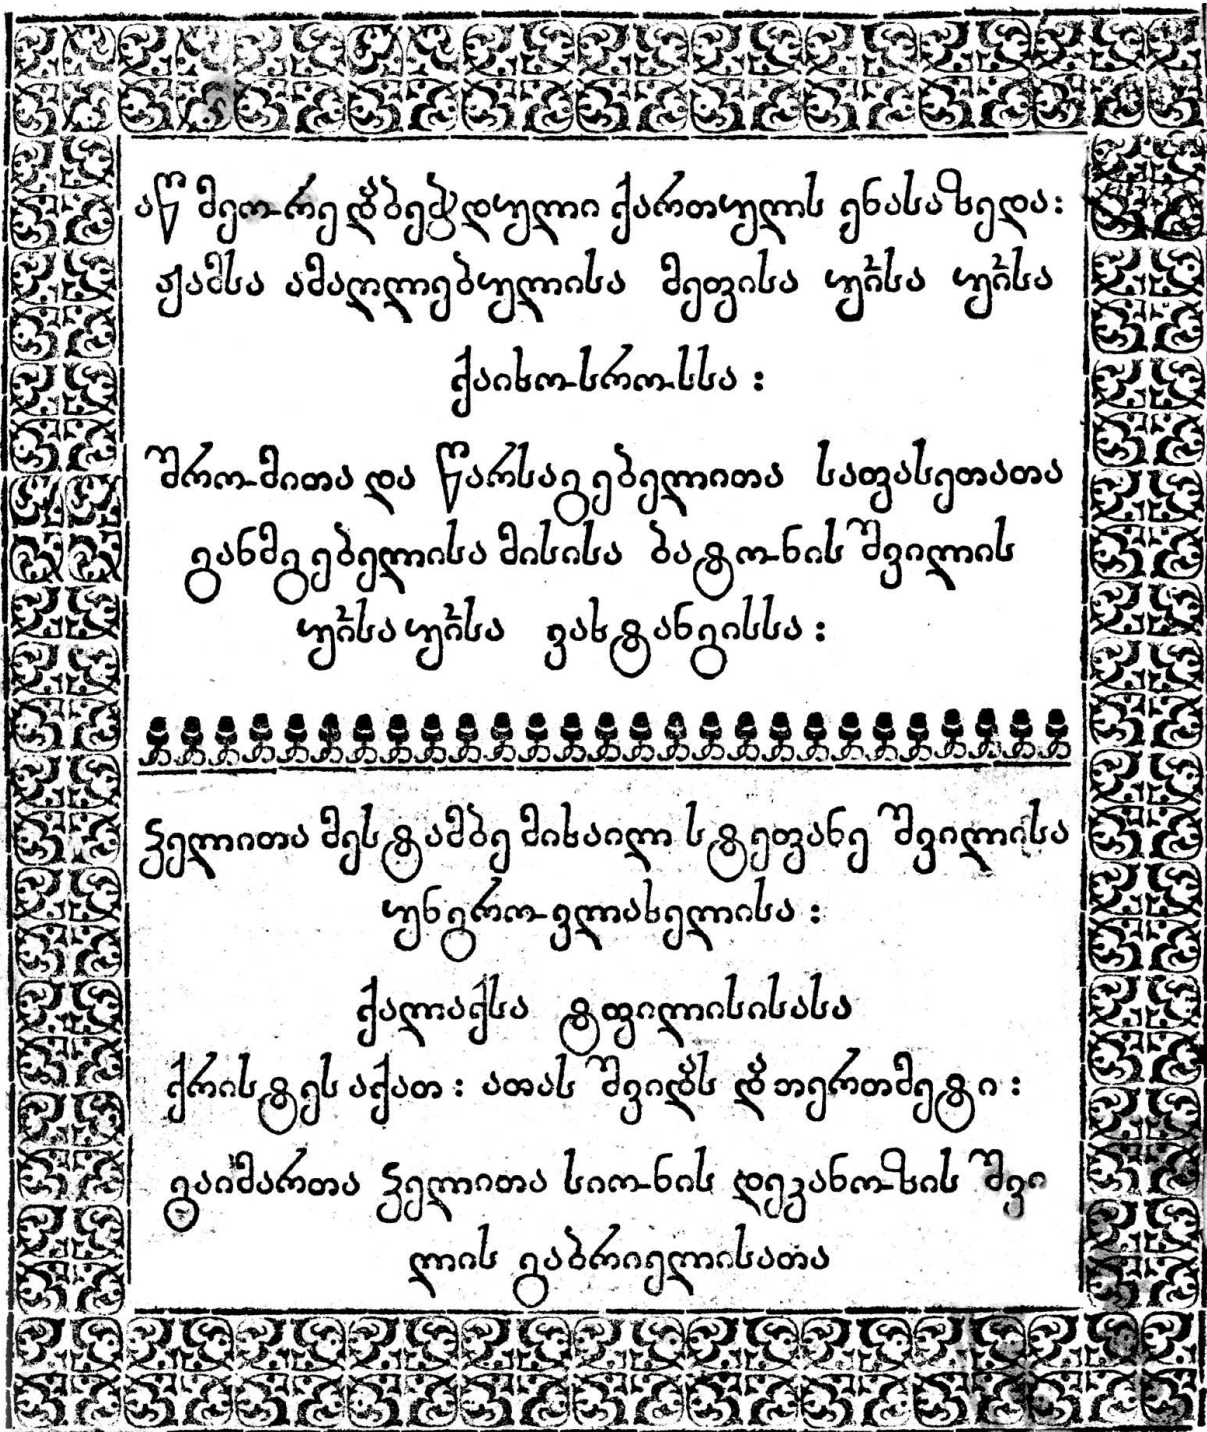 აწ მეორედ დაბეჭდული ქართულს ენასა ზედა:
ჟამსა ამაღლებულისა მეფისა უფლისა უფლისა
ქაიხოსროსსა:
შრომითა და წარსაგებელითა საფასეთათა
განმგებელისა მისისა ბატონის შვილის
უფლისა უფლისა ვახტანგისსა:
ჴელითა მესტამბე მიხაილ სტეფანე შვილისა
უნგროვლახელისა:
ქალაქსა ტფილისისასა
ქრისტეს აქათ: ათას შვიდას და თერთმეტი:
გაიმართა ჴელითა სიონის დეკანოზის შვი
ლის გაბრიელისათა